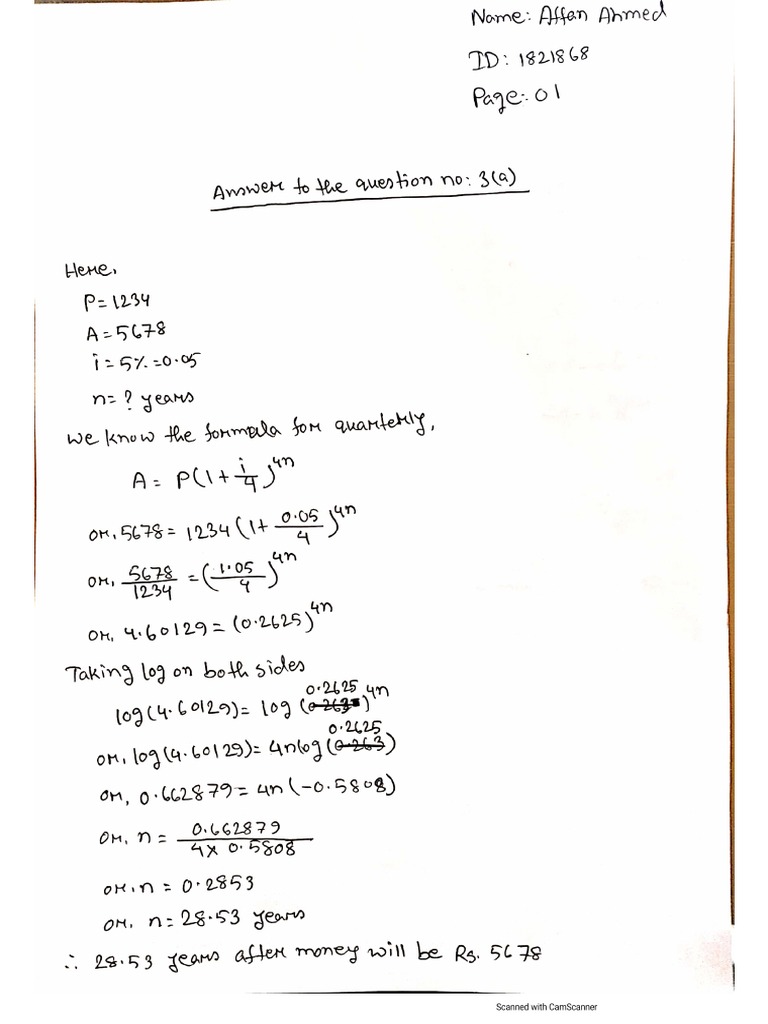 Name: Affan Ahmed
ID: 1821868
Page: 01
Answer to the question no: 3(a)
Here,
P = 1234
A = 5678
i = 5% = 0.05
n = ? years
We know the formula for quarterly,
A = P(1 + i/4)^4n
or, 5678 = 1234(1 + 0.05/4)^4n
or, 5678/1234 = (1.05/4)^4n
or, 4.60129 = (0.2625)^4n
Taking log on both sides
log(4.60129) = log(0.2625)^4n
or, log(4.60129) = 4nlog(0.2625)
or, 0.662879 = 4n(-0.5808)
or, n = 0.662879/4x 0.5808
or, n = 0.2853
or, n = 28.53 years
∴ 28.53 years after money will be Rs. 5678
Scanned with CamScanner